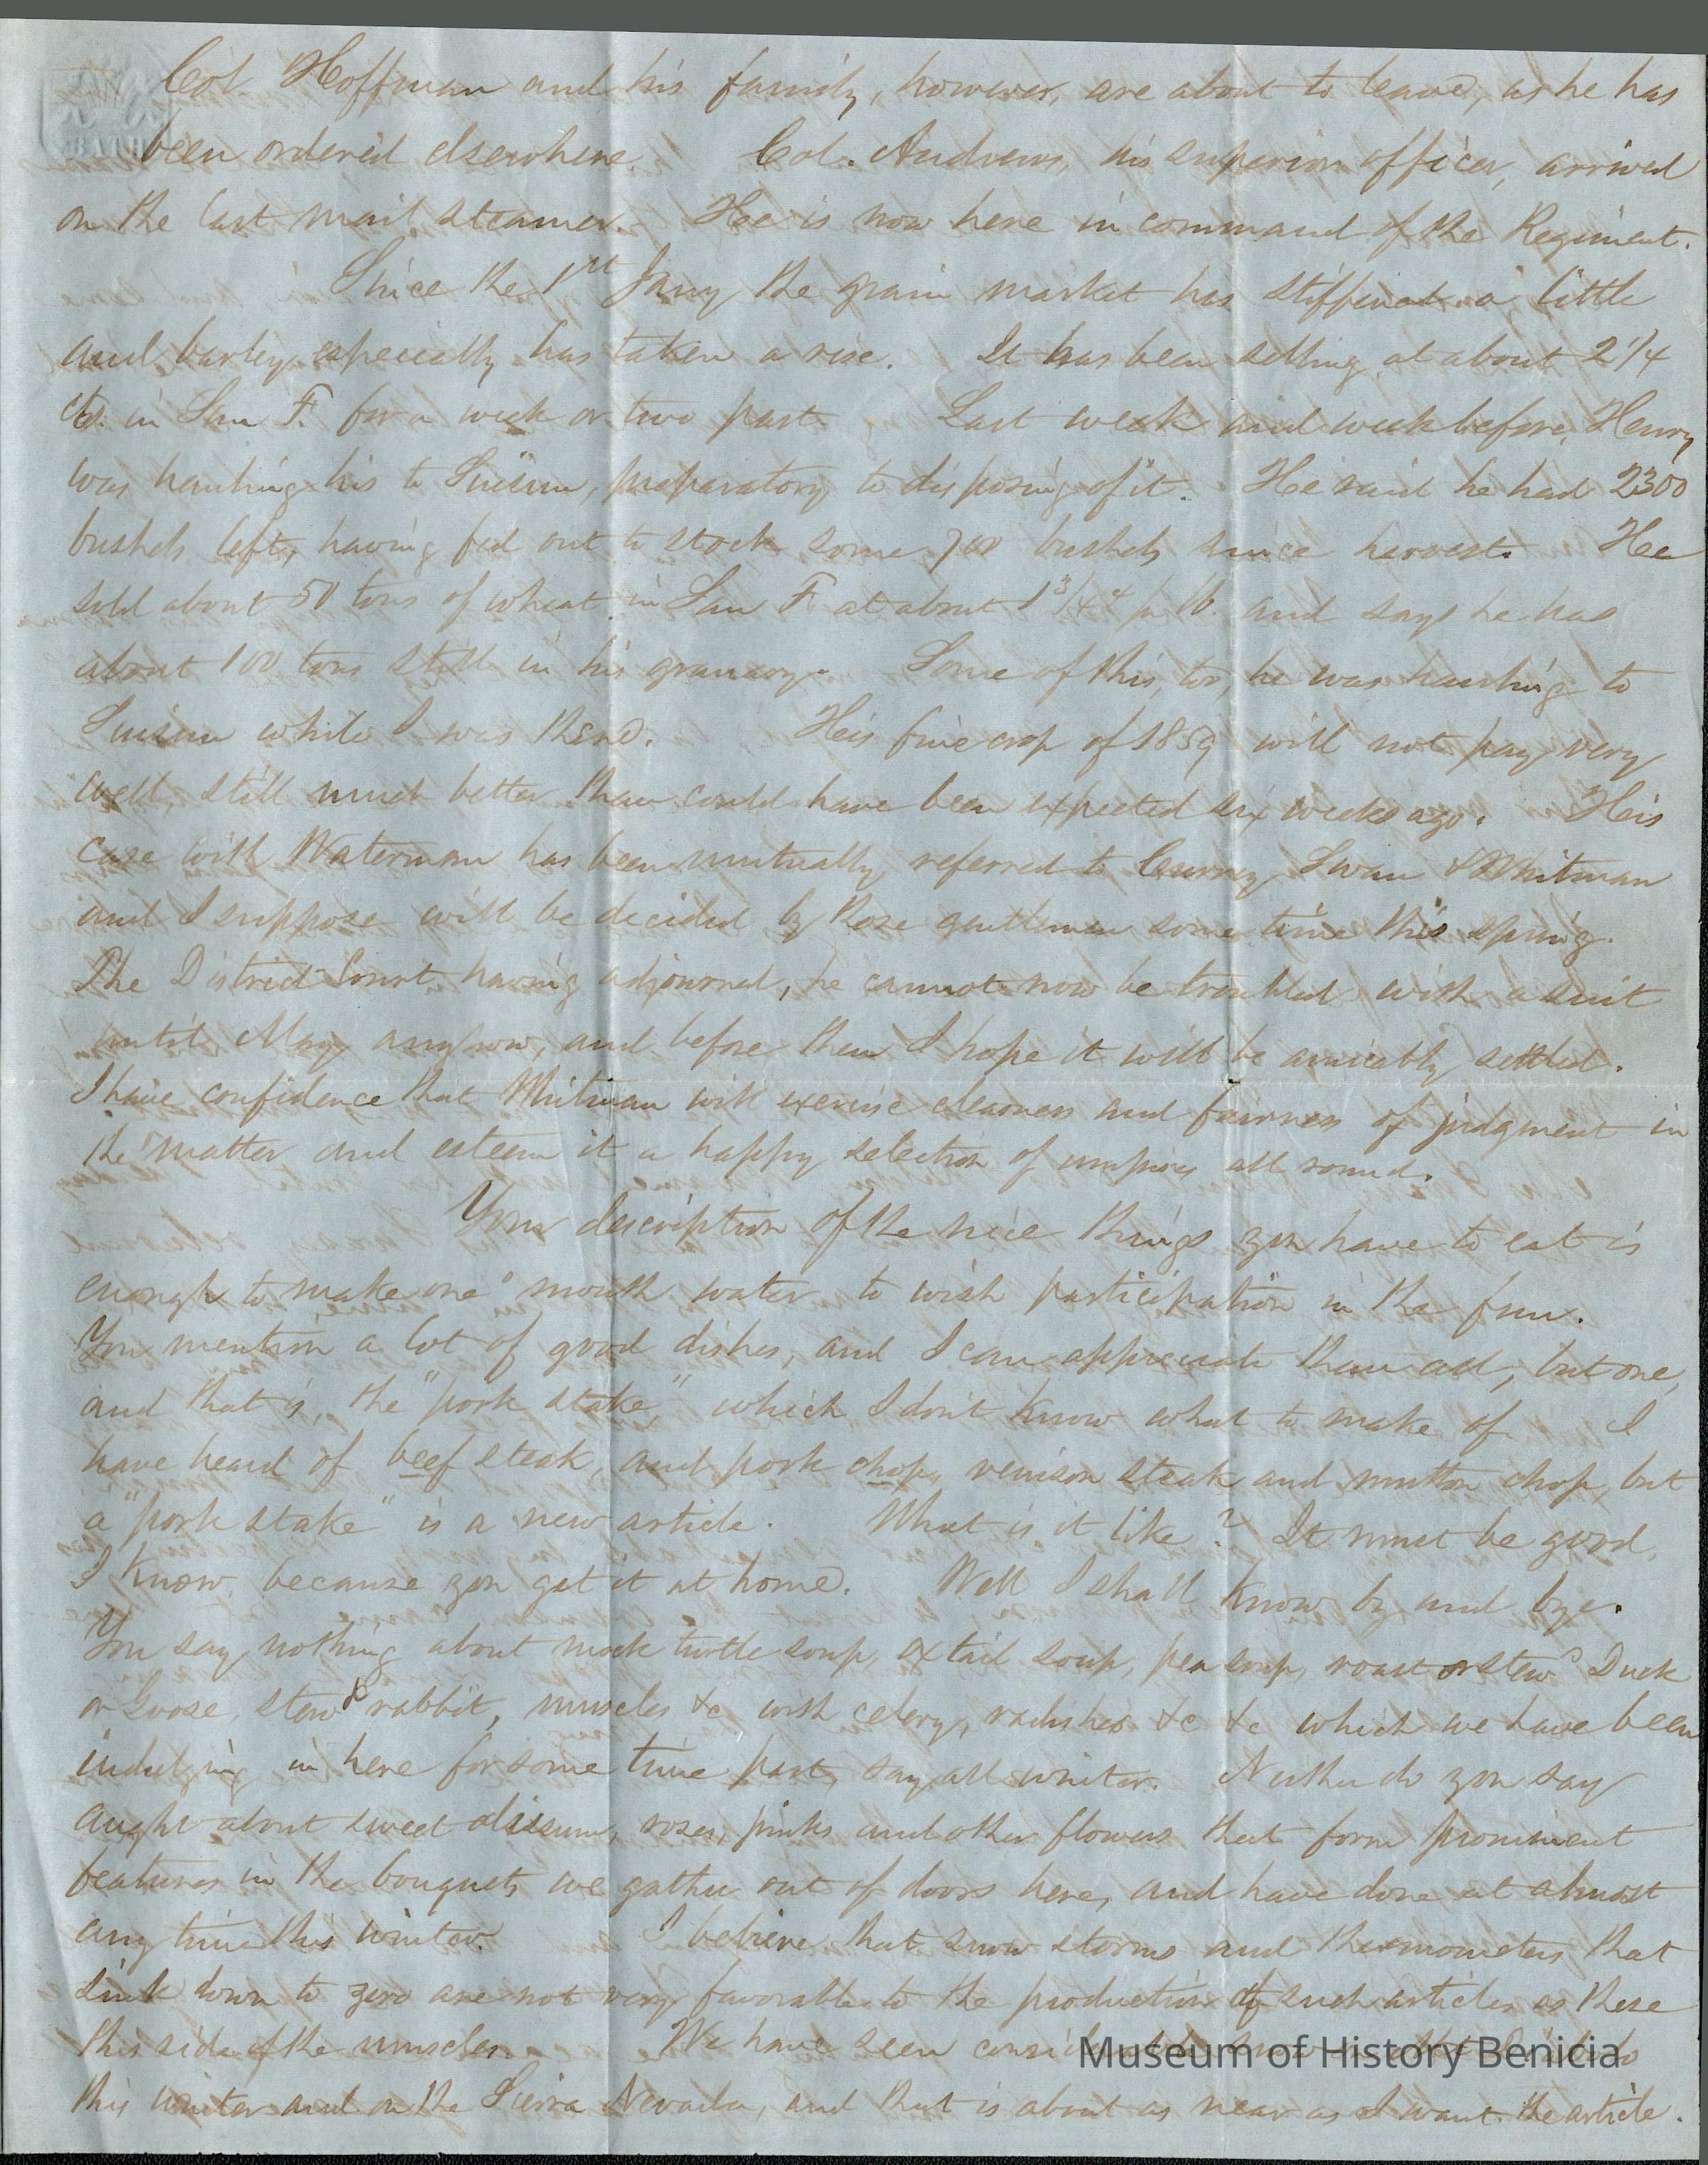 Col. Hoffman and his family, however, are about to leave, as he has
been ordered elsewhere. Col. Andrews, his superior officer, arrived
on the last mail steamer. He is now here in command of the Regiment.
Since the 1st Jany the grain market has stiffened a little
and barley especially has taken a rise. It has been selling at about 2 1/4
cts. in San F. for a week or two past. Last week and week before, Henry
was hauling his to Suisun, preparatory to disposing of it. He said he had 2300
bushels left, having fed out to stock some 700 bushels since harvest. He
sold about 50 tons of wheat in San F. at about 1 3/4 cts pr lb. and says he has
about 100 tons still in his granary. Some of this, too, he was hauling to
Suisun while I was there. His fine crop of 1859 will not pay very
well, still much better than could have been expected six weeks ago. His
case with Waterman has been mutually referred to Currey, Swan & Whitman
and I suppose will be decided by those gentlemen some time this spring.
The District Court having adjourned, he cannot now be troubled with a suit
until May anyhow, and before then I hope it will be amicably settled.
I have confidence that Whitman will exercise clearness and fairness of judgment in
the matter and esteem it a happy selection of umpires all round.
Your description of the nice things you have to eat is
enough to make one's mouth water to wish participation in the fun.
You mention a lot of good dishes, and I can appreciate them all, but one,
and that is, the "pork stake," which I don't know what to make of. I
have heard of beef steak, and pork chop, venison steak and mutton chop, but
a "pork stake" is a new article. What is it like? It must be good,
I know, because you get it at home. Well I shall know by and bye.
You say nothing about mock turtle soup, oxtail soup, pea soup, roast or stewd Duck
or Goose, stewd rabbit, muscles &c with celery, radishes &c &c which we have been
indulging in here for some time past, say all winter. Neither do you say
aught about sweet alissum, roses, pinks and other flowers that form prominent
features in the bouquets we gather out of doors here, and have done at almost
any time this winter. I believe that snow storms and thermometers that
sink down to zero are not very favorable to the production of such articles as these
this side of the muscles. We have seen considerable snow on
this winter and on the Sierra Nevada, and that is about as near as I want the article.
Museum of History Benicia